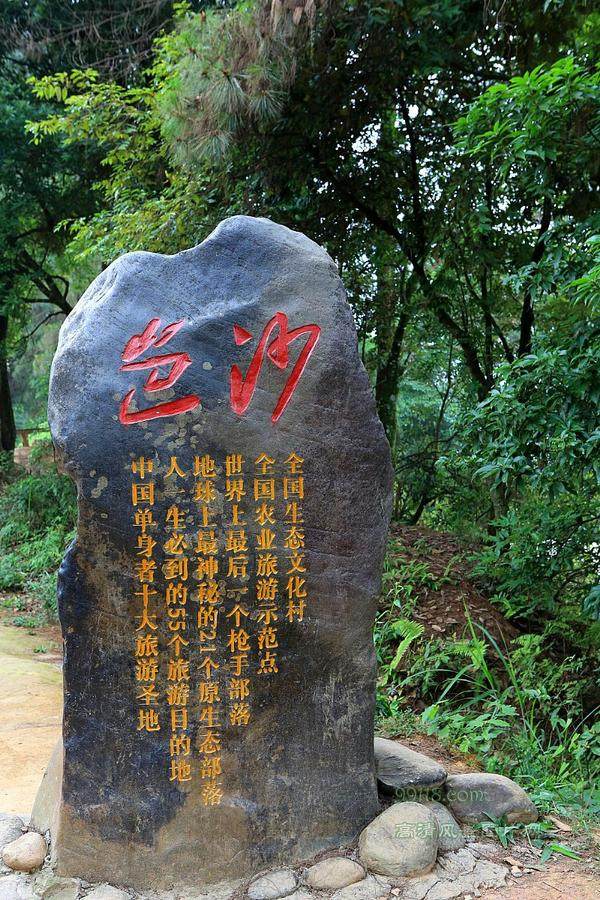 岜沙
全国生态文化村
全国农业旅游示范点
世界上最后一个枪手部落
地球上最神秘的21个原生态部落
人一生必到的55个旅游目的地
中国单身者十大旅游圣地
高清风